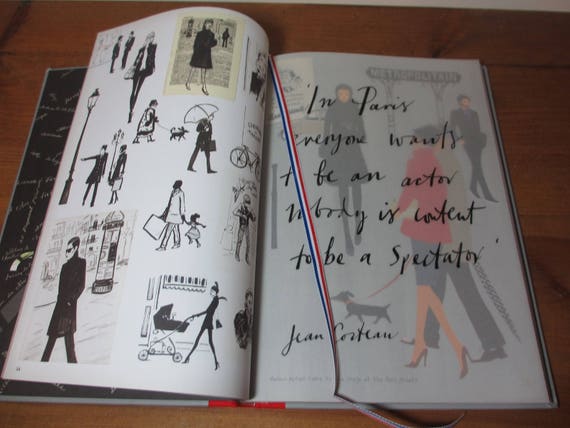 METROPOLITAIN
'In Paris
everyone wants
to be an actor
nobody is content
to be a spectator'
Jean Cocteau